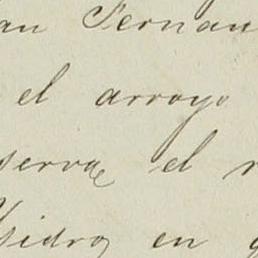 an Fernan
el arroyo
serva el r
Ysidro en g